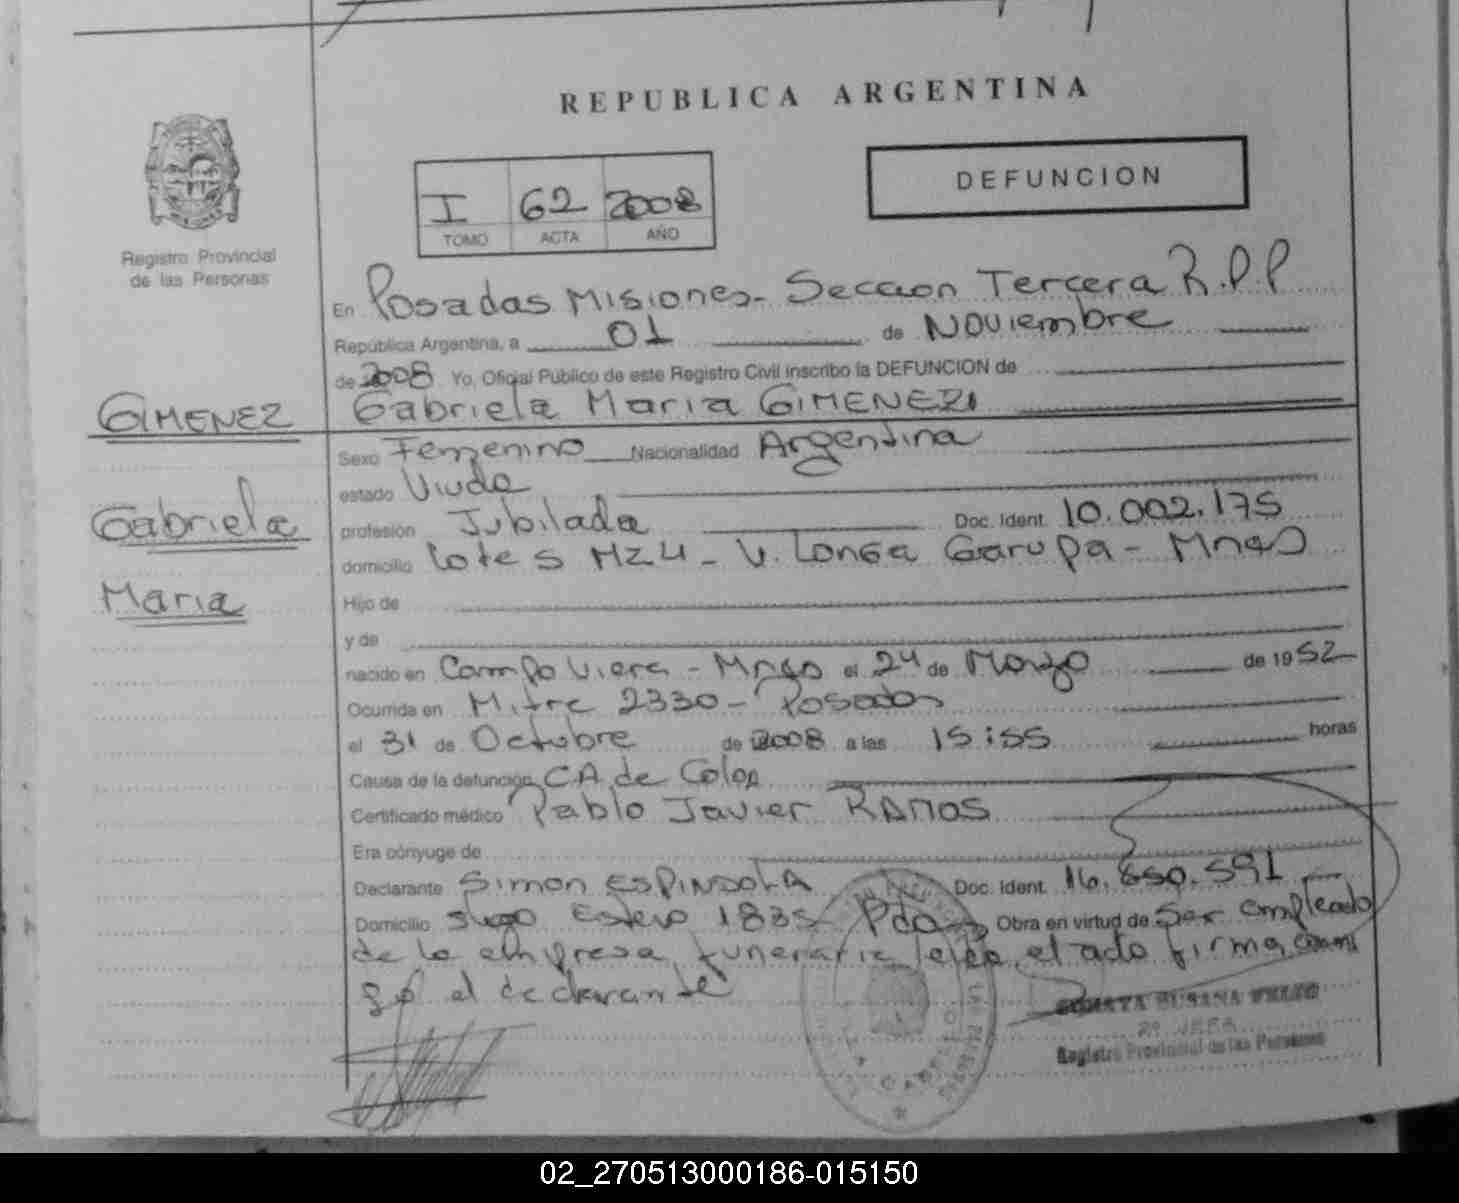 REPUBLICA ARGENTINA
DEFUNCION
I 62 2008
TOMO ACTA AÑO
Registro Provincial
de las Personas
En Posadas Misiones - Seccion Tercera R.P.P
República Argentina, a 01 de Noviembre
de 2008 Yo, Oficial Público de este Registro Civil inscribo la DEFUNCION de
GIMENEZ
Gabriela Maria GIMENEZ
Sexo Femenino Nacionalidad Argentina
estado Viuda
Gabriela
profesión Jubilada Doc. Ident. 10.002.175
domicilio lote 5 Mz 4 - V. Longa Garupa - Mnes
Maria
Hijo de
y de
nacido en Campo Viera - Mnes el 24 de Marzo de 1952
Ocurrida en Mitre 2330 - Posadas
el 31 de Octubre de 2008 a las 15:55 horas
Causa de la defunción CA de Colon
Certificado médico Pablo Javier RAMOS
Era cónyuge de
Declarante Simon ESPINDOLA Doc. Ident. 16.850.591
Domicilio Sgo Estero 1835 Pdas Obra en virtud de Ser empleado
de la empresa funeraria leida el acta firma
el declarante
2º JEFA
Registro Provincial de las Personas
02_270513000186-015150